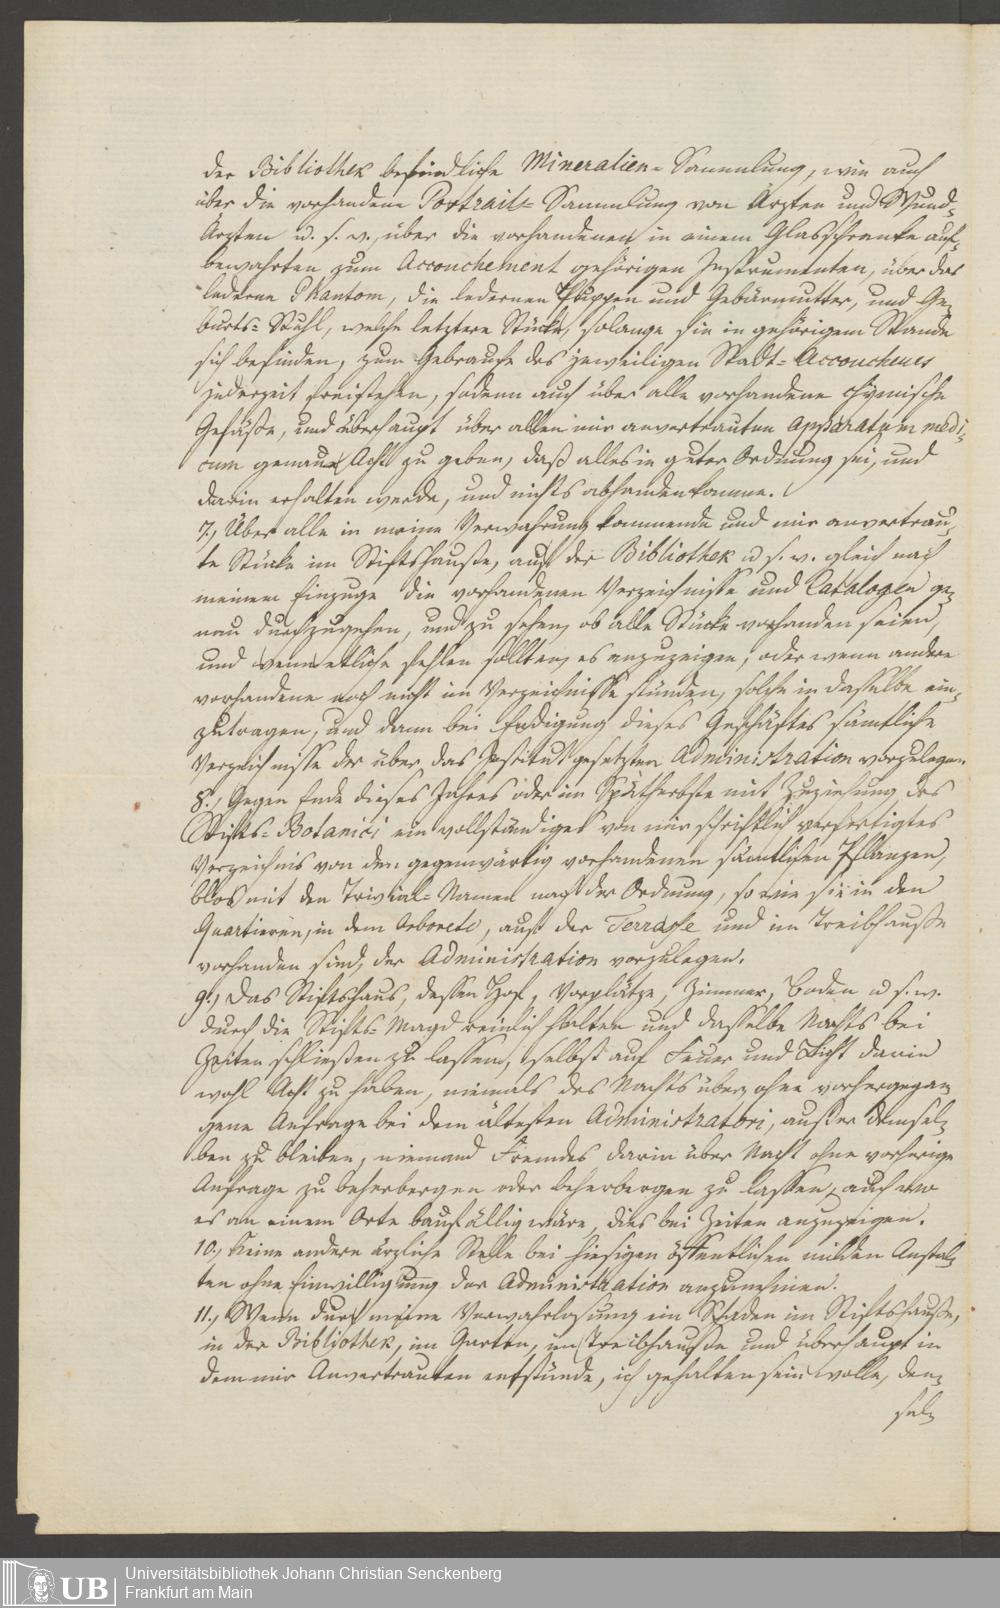 der Bibliothek befindliche Mineralien-Sammlung, wie auch
über die vorhandene Portrait-Sammlung von Ärzten und Wund-
Ärzten u. s. w., über die vorhandenen in einem Glasschranke auf-
bewahrten zum Accouchement gehörigen Instrumenten, über das
lederne Phantom, die ledernen Puppen und Gebärmutter, und Ge-
burts-Stuhl, welche letztere Stücke, solange sie in gehörigem Stande
sich befinden, zum Gebrauche des jeweiligen Stadt-Accoucheurs
jederzeit freistehen, sodann auch über alle vorhandene chymische
Gefäße, und überhaupt über allen mir anvertrauten Apparatum medi-
cum genaue Acht zu geben, daß alles in guter Ordnung sei, und
darin erhalten werde, und nichts abhanden komme.
7., Über alle in meine Verwahrung kommende und mir anvertrau-
te Stücke im Stiftshauße, auf der Bibliothek u s. w. gleich nach
meinem Einzuge die vorhandenen Verzeichnisse und Catalogen ge-
nau durchzugehen, und zu sehen, ob alle Stücke vorhanden seien,
und wenn etliche fehlen sollten, es anzuzeigen, oder wenn andere
vorhandene noch nicht im Verzeichnisse stünden, solche in dasselbe ein-
zutragen, und dann bei Endigung dieses Geschäftes sämtliche
Verzeichnisse der über das Institut gesetzten Administration vorzulegen.
8., Gegen Ende dieses Jahres oder im Spätherbste mit Zuziehung des
Stifts-Botanici ein vollständiges von mir schriftlich verfertigtes
Verzeichnis von den gegenwärtig vorhandenen sämtlichen Pflanzen,
blos mit den Trivial-Namen nach der Ordnung, so wie sie in den
Quartieren, in dem Arboreto, auf der Terrasse und im Treibhauße
vorhanden sind, der Administration vorzulegen.
9., Das Stiftshaus, dessen Hof, Vorplätze, Zimmer, Boden u s. w.
durch die Stifts-Magd reinlich halten und dasselbe Nachts bei
Zeiten schließen zu lassen, selbst auf Feuer und Licht darin
wohl Acht zu haben, niemals des Nachts über, ohne vorhergegan-
gene Anfrage bei dem ältesten Administratori, außer demsel-
ben zu bleiben, niemand Fremdes darin über Nacht ohne vorherige
Anfrage zu beherbergen oder beherbergen zu lassen, auch wo
es an einem Orte baufällig wäre, dies bei Zeiten anzuzeigen.
10., Keine andere ärzliche Stelle bei hiesigen öffentlichen milden Anstal-
ten ohne Einwilligung der Administration anzunehmen.
11., Wenn durch meine Verwahrlosung ein Schaden im Stiftshauße,
in der Bibliothek, im Garten, im Treibhauße und überhaupt in
dem mir Anvertrauten entstünde, ich gehalten sein wolle, den-
sel-
UB
Universitätsbibliothek Johann Christian Senckenberg
Frankfurt am Main